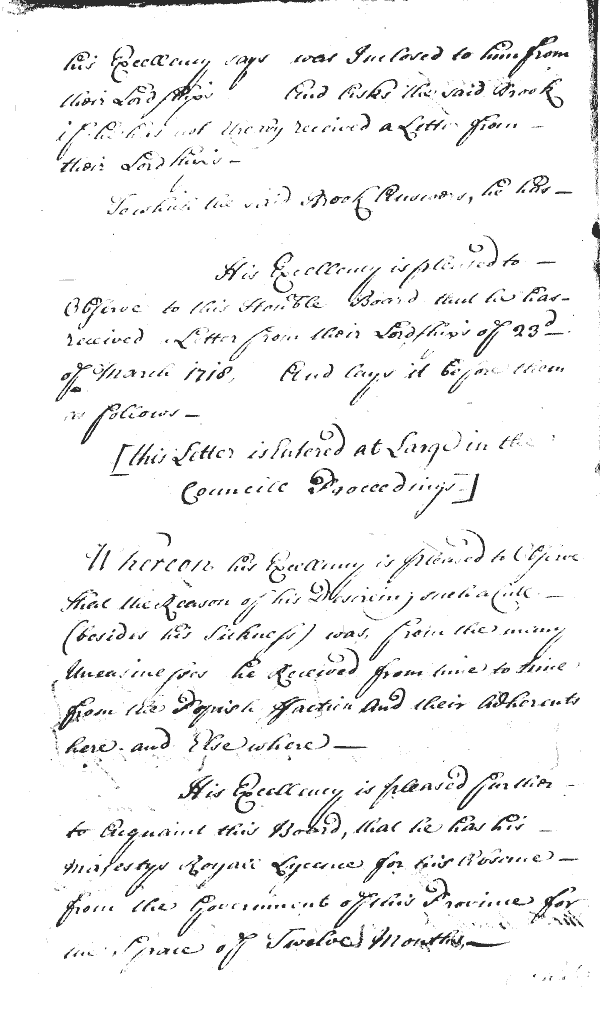 his Excellency says was Inclosed to him from
their Lordships And Asks the said Brook
if he has not received a Letter from —
their Lordships —
To which the said Brook Answers, he has —
His Excellency is pleased to —
Observe to this Honble Board that he has
received a Letter from their Lordships of 23d
of March 1718, And lays it before them
as follows —
[this Letter is Entered at Large in the
Councill Proceedings]
Whereon his Excellency is pleased to Observe
that the Reason of his Desireing such a —
(besides his Sickness) was, from the many
Uneasinesses he Received from time to time
from the Popish ffaction And their Adherents
here and Elsewhere —
His Excellency is pleased further
to Acquaint this Board, that he has his —
Majestys Royall Lycence for his Absence —
from the Government of this Province for
the Space of Twelve Months, —